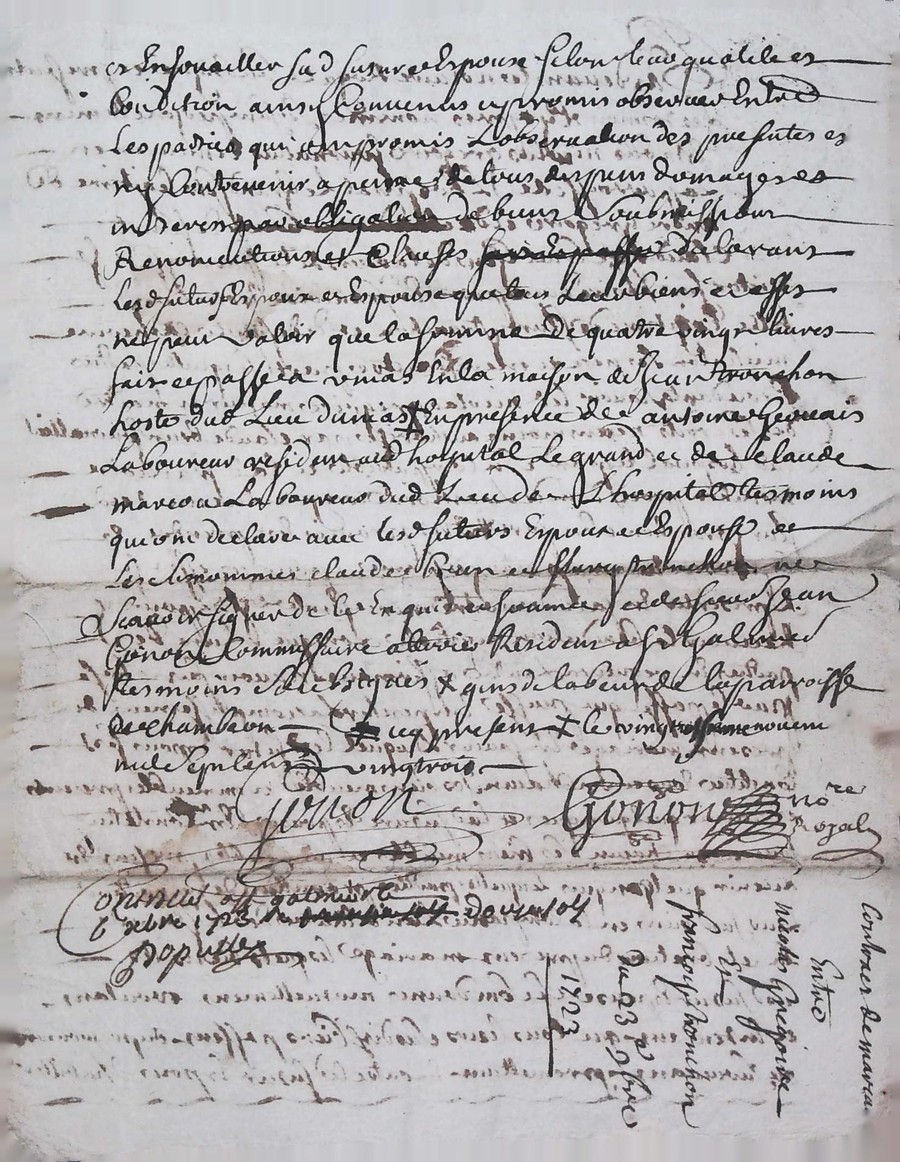 et Enjouailler sad future Espouse selon leur qualité et
Condition ainsy Convenus et promis observer Entre
Les parties qui ont promis Lobservation des presentes et
ny Contrevenir a peine de tous despens domages et
interests par obligation de biens Soubmissions
Renonciations et Clauses declarant
Lesd futurs Espoux et Espouse que tous Leurs biens et effets
ne peuvent valoir que la somme de quatre vingt livres
fait et passé a unias En la maison de Jean tronchon
hoste dud Lieu dunias En presence de antoine Gervais
Laboureur resident aud hospital Le grand et de Claude
marcou Laboureur dud Lieu de Lhospital tesmoins
qui ont declaré avec lesd futurs Espoux et Espouse et
Les Claude et fleury tronchon ne
Scavoir signer de ce Enquis et de sieur Jean
Gonon Commissaire a terrier Resident a St Galmier
tesmoins gens de labeur de la parroisse
de Chambeon icy present le vingt novem
mil Sept Cent vingt trois
Gonon Gonon nore
Royal
Controllé a St galmier le
6 xbre 1723 Re douze sols
Dopuller
Contract de maria
Entre
Grégoire
Et
françoise tronchon
du 23 9bre
1723